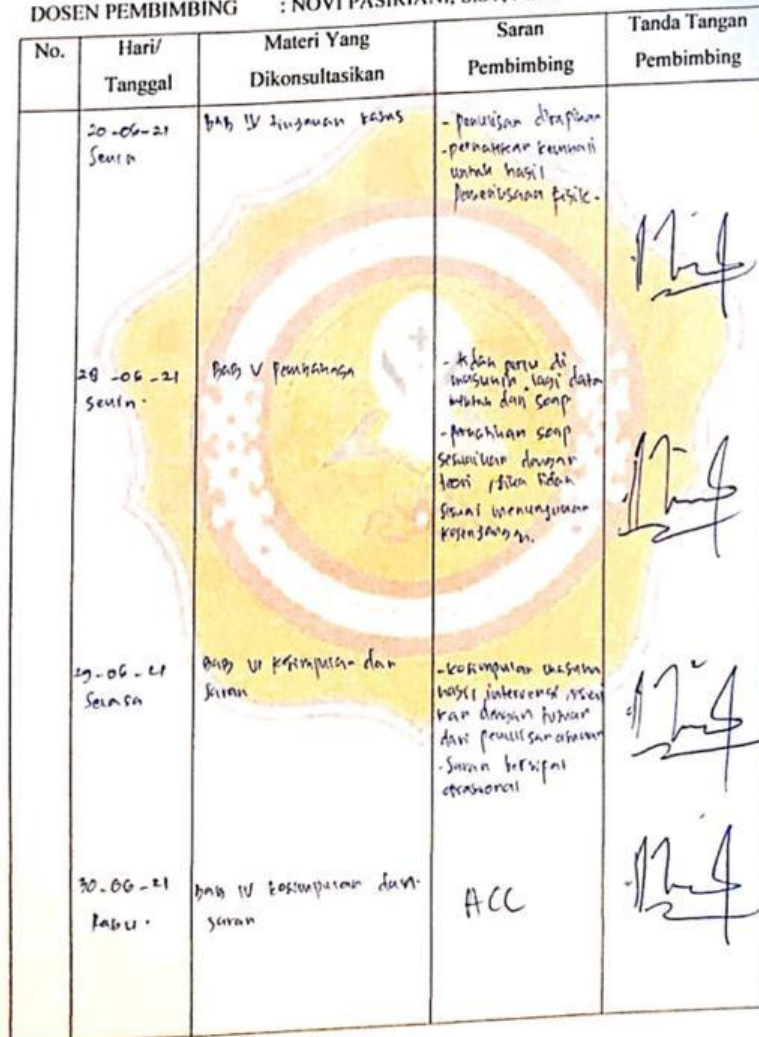 DOSEN PEMBIMBING : NOVI PASIRIANI,
No. Hari/ Tanggal Materi Yang Dikonsultasikan Saran Pembimbing Tanda Tangan Pembimbing
20-06-21
Senin
BAB IV tinjauan kasus
- penulisan dirapikan
- perhatikan kembali
untuk hasil
pemeriksaan fisik.
28-06-21
Senin.
BAB V pembahasan
- tidak perlu di
masukin lagi data
dari soap
soap
sesuaikan dengan
teori, jika tidak
sesuai
kesenjangan.
29-06-21
Selasa
BAB VI kesimpulan dan
saran
- kesimpulan
hasil intervensi
kan dengan tujuan
dari
- Saran bersifat
30-06-21
Rabu.
BAB IV kesimpulan dan
saran
ACC